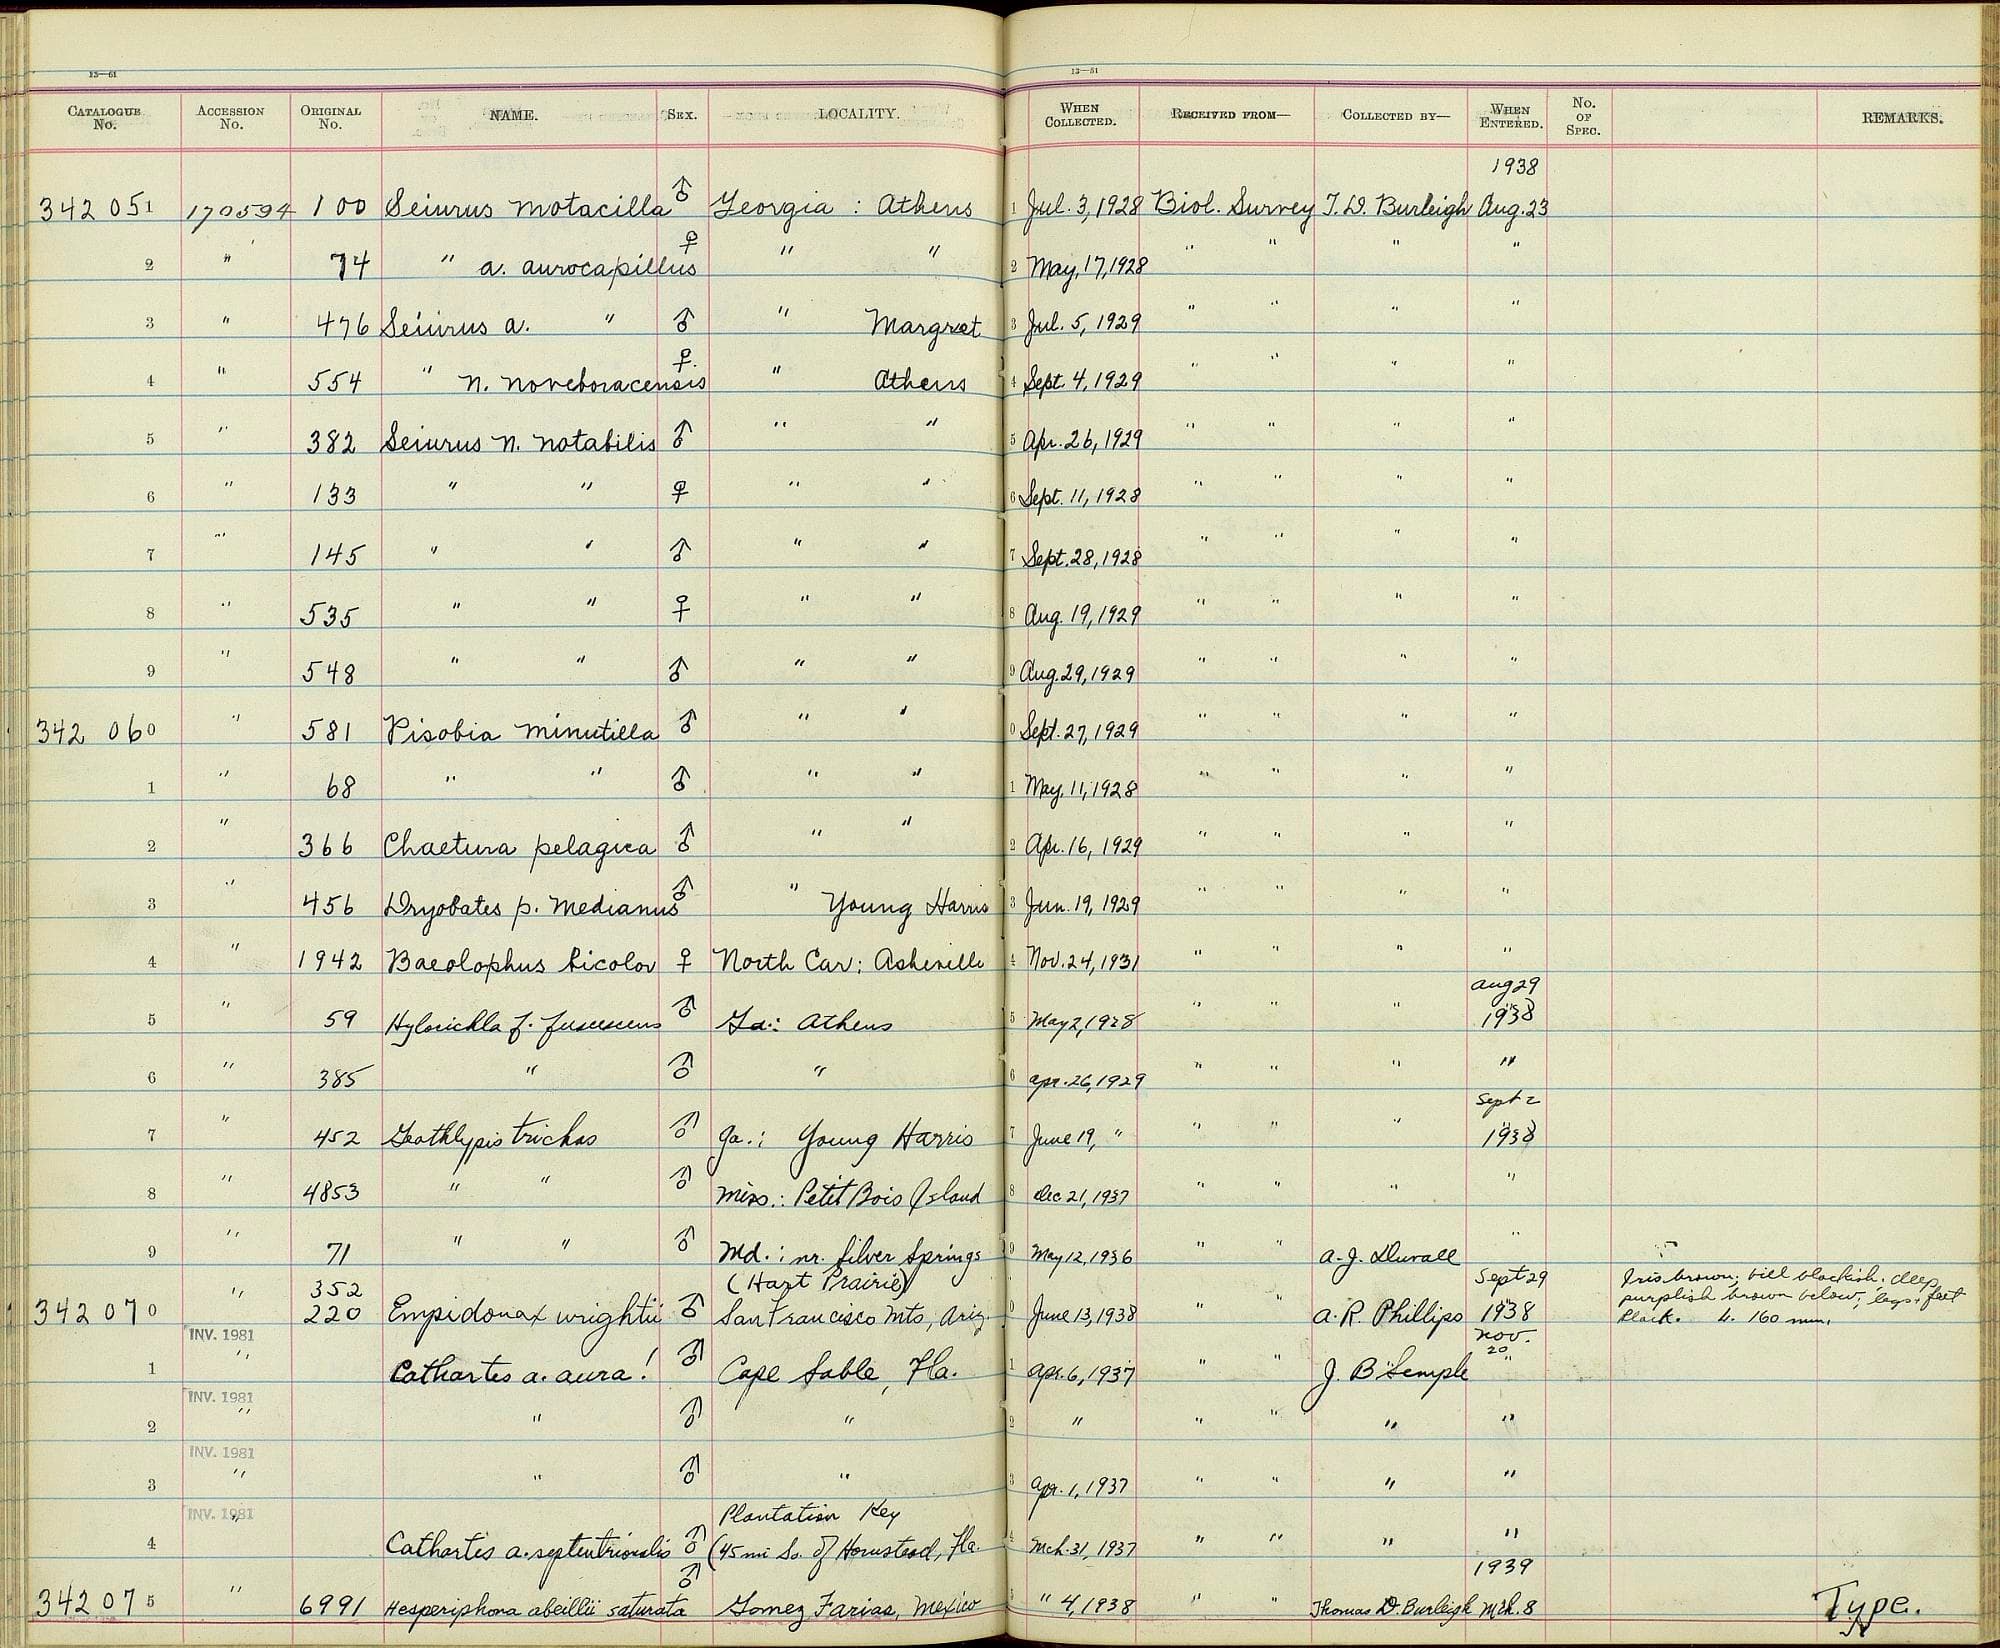 13—61 13—51
CATALOGUE No. ACCESSION No. ORIGINAL No. NAME. SEX. LOCALITY. WHEN COLLECTED. RECEIVED FROM— COLLECTED BY— WHEN ENTERED. No. OF SPEC. REMARKS.
1938
342 051 170594 100 Seiurus motacilla ♂ Georgia : Athens 1 Jul. 3, 1928 Biol. Survey T. D. Burleigh Aug. 23
2 " 74 " a. aurocapillus ♀ " " 2 May, 17, 1928 " " " "
3 " 476 Seiurus a. " ♂ " Margret 3 Jul. 5, 1929 " " " "
4 " 554 " n. noveboracensis ♀ " Athens 4 Sept. 4, 1929 " " " "
5 " 382 Seiurus n. notabilis ♂ " " 5 Apr. 26, 1929 " " " "
6 " 133 " " ♀ " " 6 Sept. 11, 1928 " " " "
7 " 145 " " ♂ " " 7 Sept. 28, 1928 " " " "
8 " 535 " " ♀ " " 8 Aug. 19, 1929 " " " "
9 " 548 " " ♂ " " 9 Aug. 29, 1929 " " " "
342 060 " 581 Pisobia minutilla ♂ " " 0 Sept. 27, 1929 " " " "
1 " 68 " " ♂ " " 1 May, 11, 1928 " " " "
2 " 366 Chaetura pelagica ♂ " " 2 Apr. 16, 1929 " " " "
3 " 456 Dryobates p. medianus ♂ " Young Harris 3 Jun. 19, 1929 " " " "
4 " 1942 Baeolophus bicolor ♀ North Car: Asheville 4 Nov. 24, 1931 " " " "
Aug 29
5 " 59 Hylocichla f. fuscescens ♂ Ga.: Athens 5 May 2, 1928 " " " 1938
6 " 385 " ♂ " 6 Apr. 26, 1929 " " " "
Sept 2
7 " 452 Geothlypis trichas ♂ Ga.: Young Harris 7 June 19, " " " " 1938
8 " 4853 " " ♂ Miss.: Petit Bois Island 8 Dec 21, 1937 " " " "
9 " 71 " " ♂ Md.: nr. Silver Springs 9 May 12, 1936 " " A. J. Duvall "
352 (Hart Prairie) Sept 29 Iris brown; bill blackish, deep
purplish brown below; legs + feet
342 070 " 220 Empidonax wrightii ♂ San Francisco Mts, Ariz. 0 June 13, 1938 " " A. R. Phillips 1938 black. L. 160 mm.
INV. 1981 Nov. 20
1 " Cathartes a. aura! ♂ Cape Sable, Fla. 1 Apr. 6, 1937 " " J. B. Semple "
INV. 1981
2 " " ♂ " 2 " " " " "
INV. 1981
3 " " ♂ " 3 Apr. 1, 1937 " " " "
INV. 1981 Plantation Key
4 " Cathartes a. septentrionalis ♂ (45 mi So. of Homstead, Fla. 4 Mch. 31, 1937 " " " "
1939
342 075 " 6991 Hesperiphona abeillii saturata ♂ Gomez Farias, Mexico 5 " 4, 1938 " " Thomas D. Burleigh Mch. 8 Type.